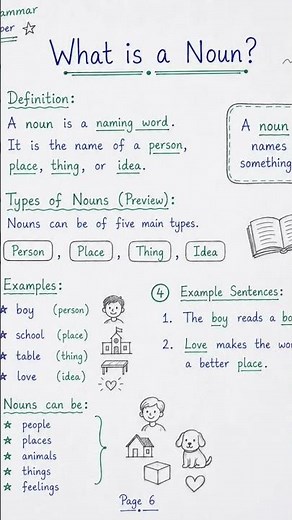 What is a Noun?
Definition:
A noun is a naming word.
It is the name of a person,
place, thing, or idea.
A noun
names
something
Types of Nouns (Preview):
Nouns can be of five main types.
Person , Place , Thing , Idea
Examples:
boy (person)
school (place)
table (thing)
love (idea)
4 Example Sentences:
1. The boy reads a
2. Love makes the
a better place.
Nouns can be:
people
places
animals
things
feelings
Page 6